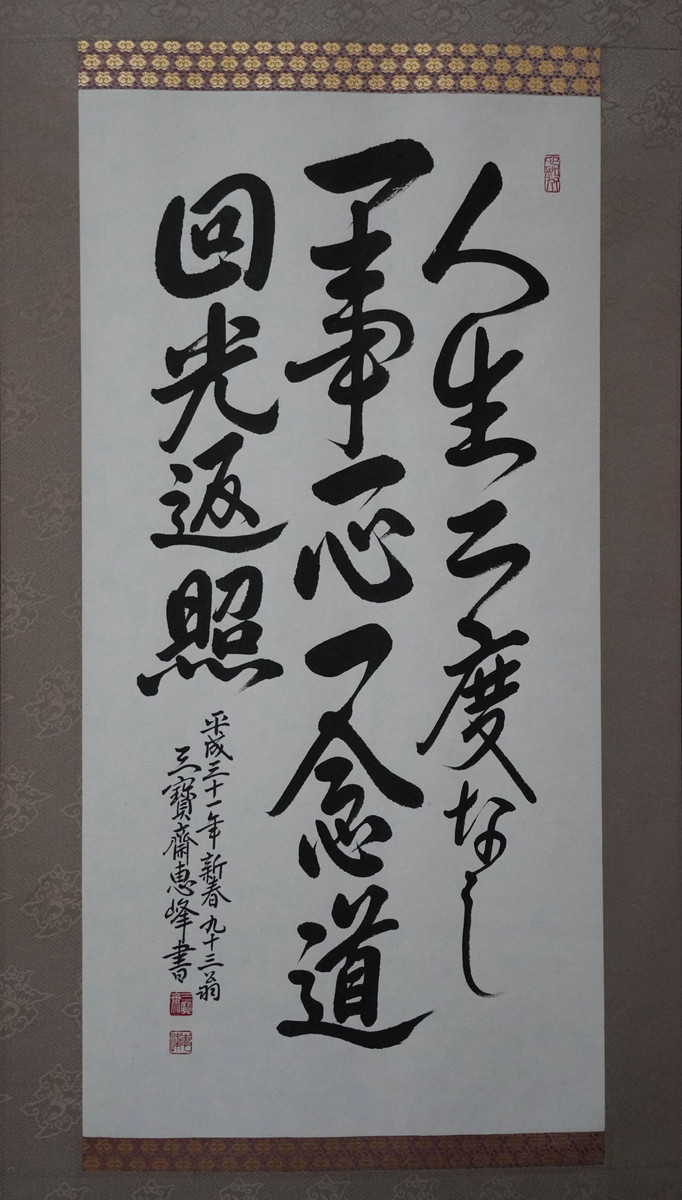 人生二度なし
一事一心一念道
回光返照
平成三十一年 新春 九十三翁
三寶齋恵峰書